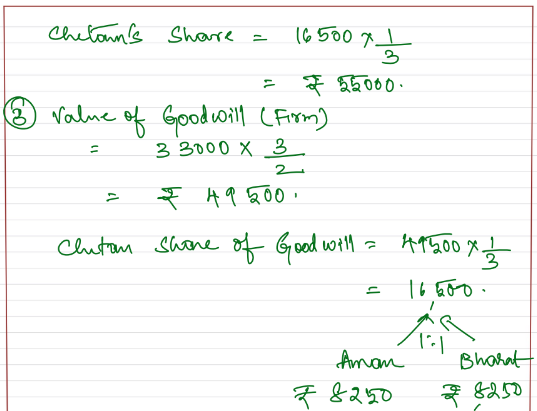 Chetan's Share = 16500 × 1/3
= ₹ 55000.
③ Value of Goodwill (Firm)
= 33000 × 3/2
= ₹ 49500.
Chetan Share of Goodwill = 49500 × 1/3
= 16500.
1:1
Aman Bharat
₹ 8250 ₹ 8250